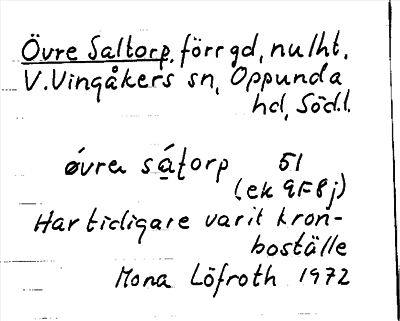 Övre Saltorp, förr gd, nu lht,
V. Vingåkers sn, Oppunda
hd, Södl.
óvrɘ sá̱ṱorp 51
(ek 9F8j)
Har tidigare varit kron-
boställe
Mona Löfroth 1972